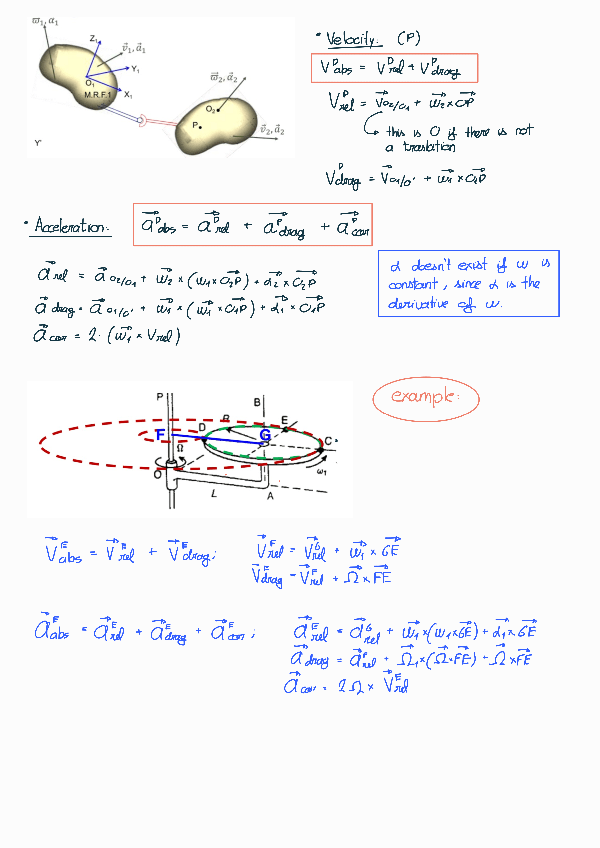 ϖ₁, α₁
Z₁
v⃗₁, a⃗₁
Y₁
O₁
X₁
M.R.F.1
ϖ⃗₂, a⃗₂
O₂
P
v⃗₂, a⃗₂
Y'
• Velocity: (P)
V⃗ᴾabs = V⃗ᴾrel + V⃗ᴾdrag
V⃗ᴾrel = V⃗o2/o1 + w⃗₂ × O⃗P
this is 0 if there is not
a translation
V⃗ᴾdrag = V⃗o1/o' + w⃗₁ × O₁P
• Acceleration:
a⃗ᴾabs = a⃗ᴾrel + a⃗ᴾdrag + a⃗ᴾcorr
a⃗rel = a⃗o2/o1 + w⃗₂ × (w⃗₁ × O₂P) + α⃗₂ × O₂P
a⃗drag = a⃗o1/o' + w⃗₁ × (w⃗₁ × O₁P) + α⃗₁ × O₁P
a⃗cor = 2 · (w⃗₁ × Vrel)
α doesn't exist if w is
constant, since α is the
derivative of w.
example:
P
B
R
E
D
F
G
C
Ω
O
ω₁
L
A
V⃗ᴱabs = V⃗ᴱrel + V⃗ᴱdrag;
V⃗ᴱrel = V⃗ᴳrel + w⃗₁ × GE
V⃗drag = V⃗ᶠrel + Ω⃗ × FE
a⃗ᴱabs = a⃗ᴱrel + a⃗ᴱdrag + a⃗ᴱcorr;
a⃗ᴱrel = a⃗ᴳrel + w⃗₁ × (w₁ × GE) + α⃗₁ × GE
a⃗drag = a⃗ᶠrel + Ω⃗₁ × (Ω⃗ × FE) + Ω⃗ × FE
a⃗cor = 2Ω × V⃗ᴱrel